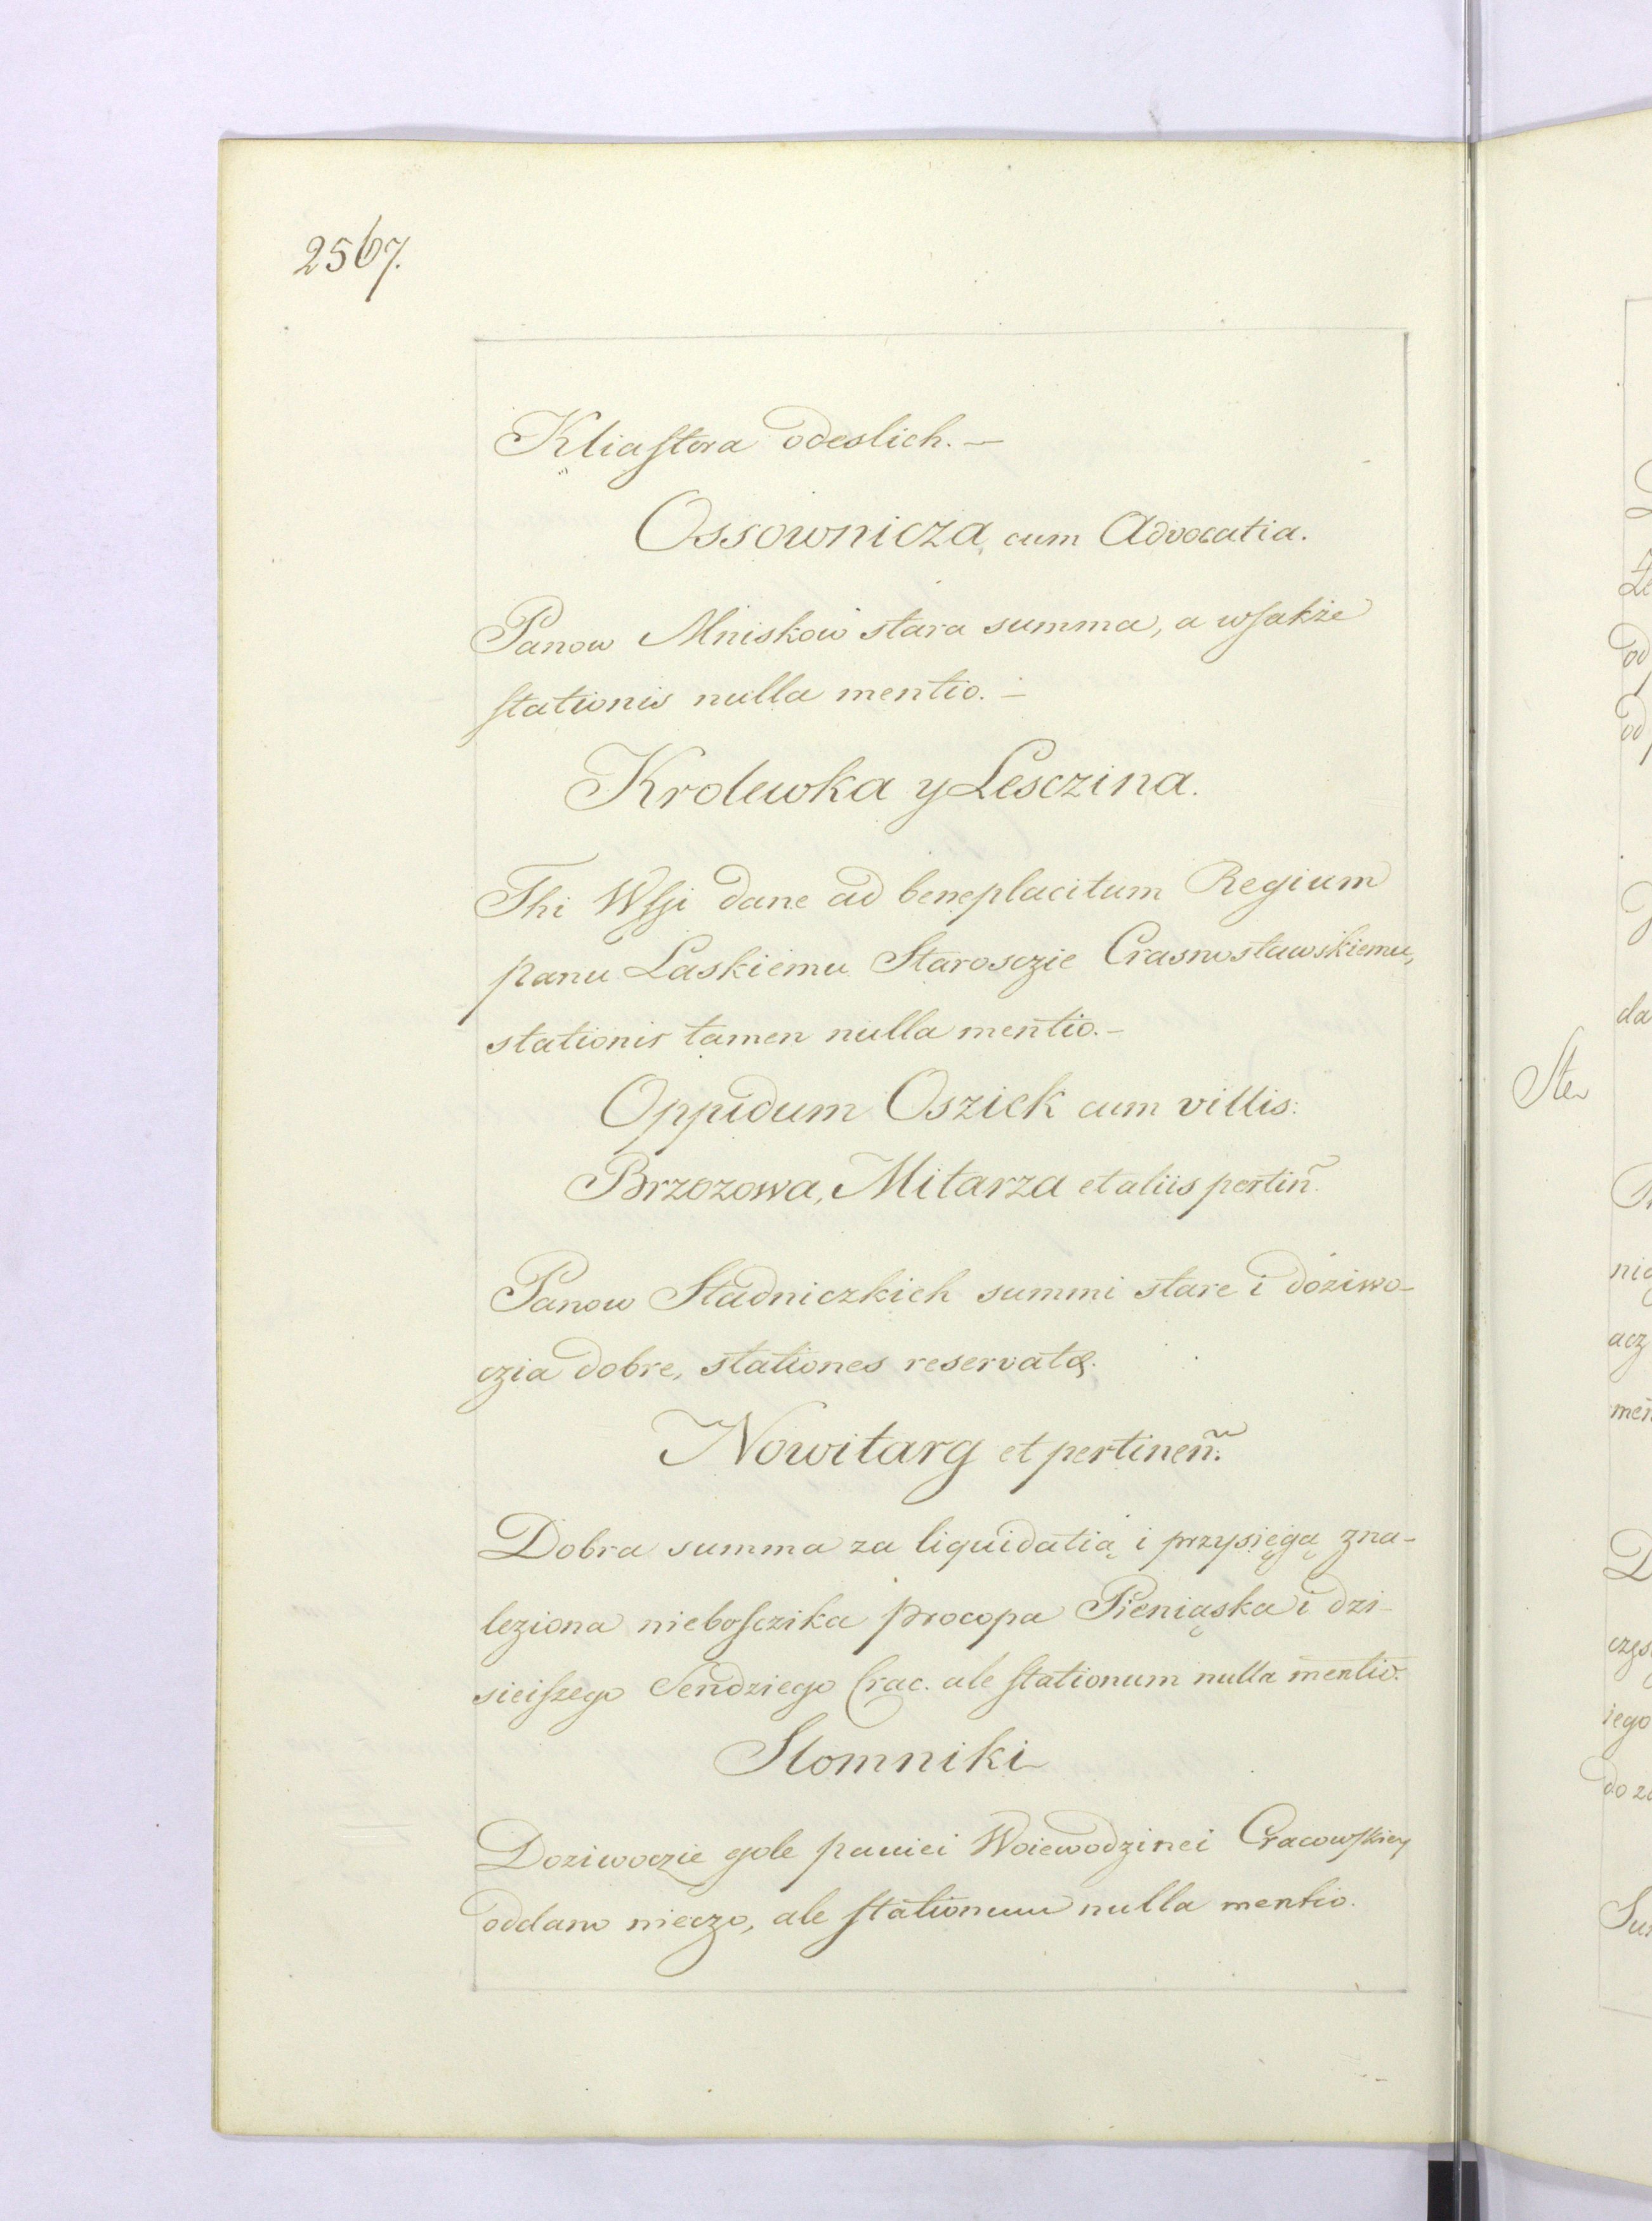 2567.
Kliasztora odeslich. —
Ossownicza cum Advocatia.
Panow Mniskow stara summa, a wſakże
ſtationis nulla mentio. —
Krolewka y Lesczina.
Thi Wſſi dane ad beneplacitum Regium
panu Laskiemu Starosczie Crasnostawskiemu,
stationis tamen nulla mentio. —
Oppidum Osziek cum villis:
Brzozowa, Mitarza et aliis pertin̄.
Panow Stadniczkich summi stare i doziwo-
czia dobre, stationes reservatę.
Nowitarg et pertinen̄.
Dobra summa za liquidatią i przysięgą zna-
leziona nieboſczika procopa Pieniąska i dzi-
sieiſzego Sendziego Crac. ale ſtationum nulla mentio.
Slomniki
Doziwoczie gole paniei Woiewodzinei Cracowſkiey
oddano nieczo, ale ſtationum nulla mentio.
Ste